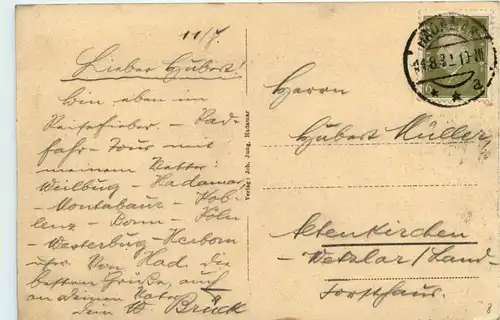 11/7.
Lieber Hubert!
bin eben im
Reisefieber – Rad-
fahr-Tour mit
meinem Vetter:
Weilbug – Hadamar,
– Montabaur – Kob
lenz – Bonn – Köln
– Westerbug – Herborn
usw. Von Had. die
besten Grüße, auch
an deinen Vater
dein W. Brück
Verlag: Joh. Jung, Hadamar
HADAMAR
Herrn
Hubert Müller,
Altenkirchen
– Wetzlar / Land –
Forsthaus.
6
a
8